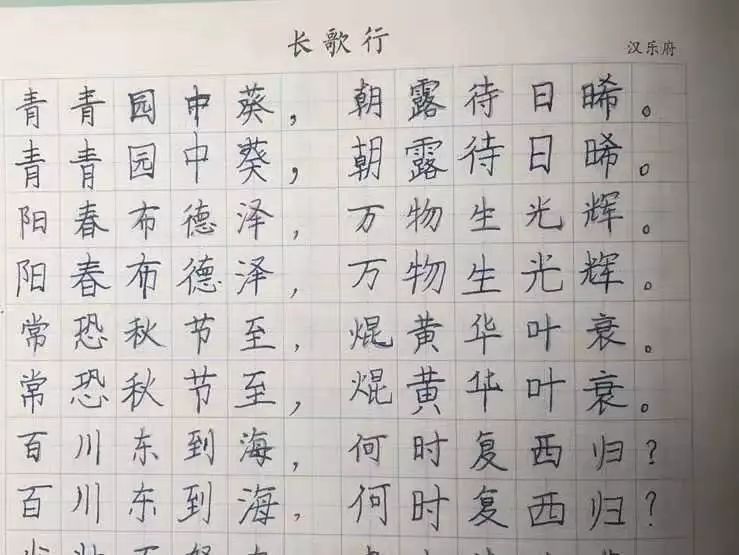 长歌行
汉乐府
青青园中葵，朝露待日晞。
青青园中葵，朝露待日晞。
阳春布德泽，万物生光辉。
阳春布德泽，万物生光辉。
常恐秋节至，焜黄华叶衰。
常恐秋节至，焜黄华叶衰。
百川东到海，何时复西归？
百川东到海，何时复西归？